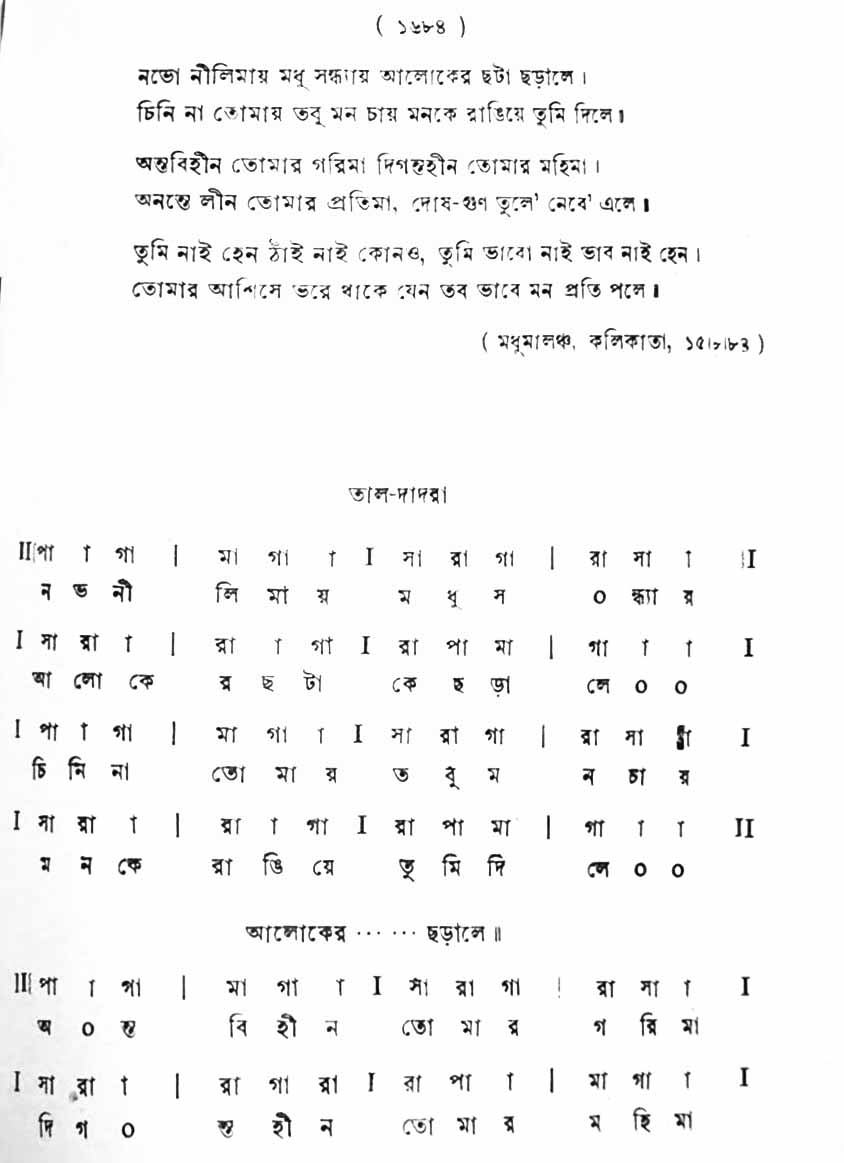 ( ১৬৮৪ )
নভো নীলিমায় মধু সন্ধ্যায় আলোকের ছটা ছড়ালে ।
চিনি না তোমায় তবু মন চায় মনকে রাঙিয়ে তুমি দিলে॥
অন্তবিহীন তোমার গরিমা দিগন্তহীন তোমার মহিমা ।
অনন্তে লীন তোমার প্রতিমা, দোষ-গুণ তুলে' নেবে' এলে॥
তুমি নাই হেন ঠাঁই নাই কোনও, তুমি ভাবো নাই ভাব নাই হেন ।
তোমার আশিসে ভরে থাকে যেন তব ভাবে মন প্রতি পলে॥
( মধুমালঞ্চ, কলিকাতা, ১৫।৮।৮৪ )
তাল-দাদরা
II পা া গা | মা গা া I সা রা গা | রা সা া I
ন ভ নী লি মা য় ম ধু স ০ ন্ধ্যা র
I সা রা া | রা া গা I রা পা মা | গা া া I
আ লো কে র ছ টা কে ছ ড়া লে ০ ০
I পা া গা | মা গা া I সা রা গা | রা সা া I
চি নি না তো মা য় ত বু ম ন চা র
I সা রা া | রা া গা I রা পা মা | গা া া II
ম ন কে রা ঙি য়ে তু মি দি লে ০ ০
আলোকের ... ... ছড়ালে॥
II পা া গা | মা গা া I সা রা গা | রা সা া I
অ ০ ন্ত বি হী ন তো মা র গ রি মা
I সা রা া | রা গা রা I রা পা া | মা গা া I
দি গ ০ ন্ত হী ন তো মা র ম হি মা